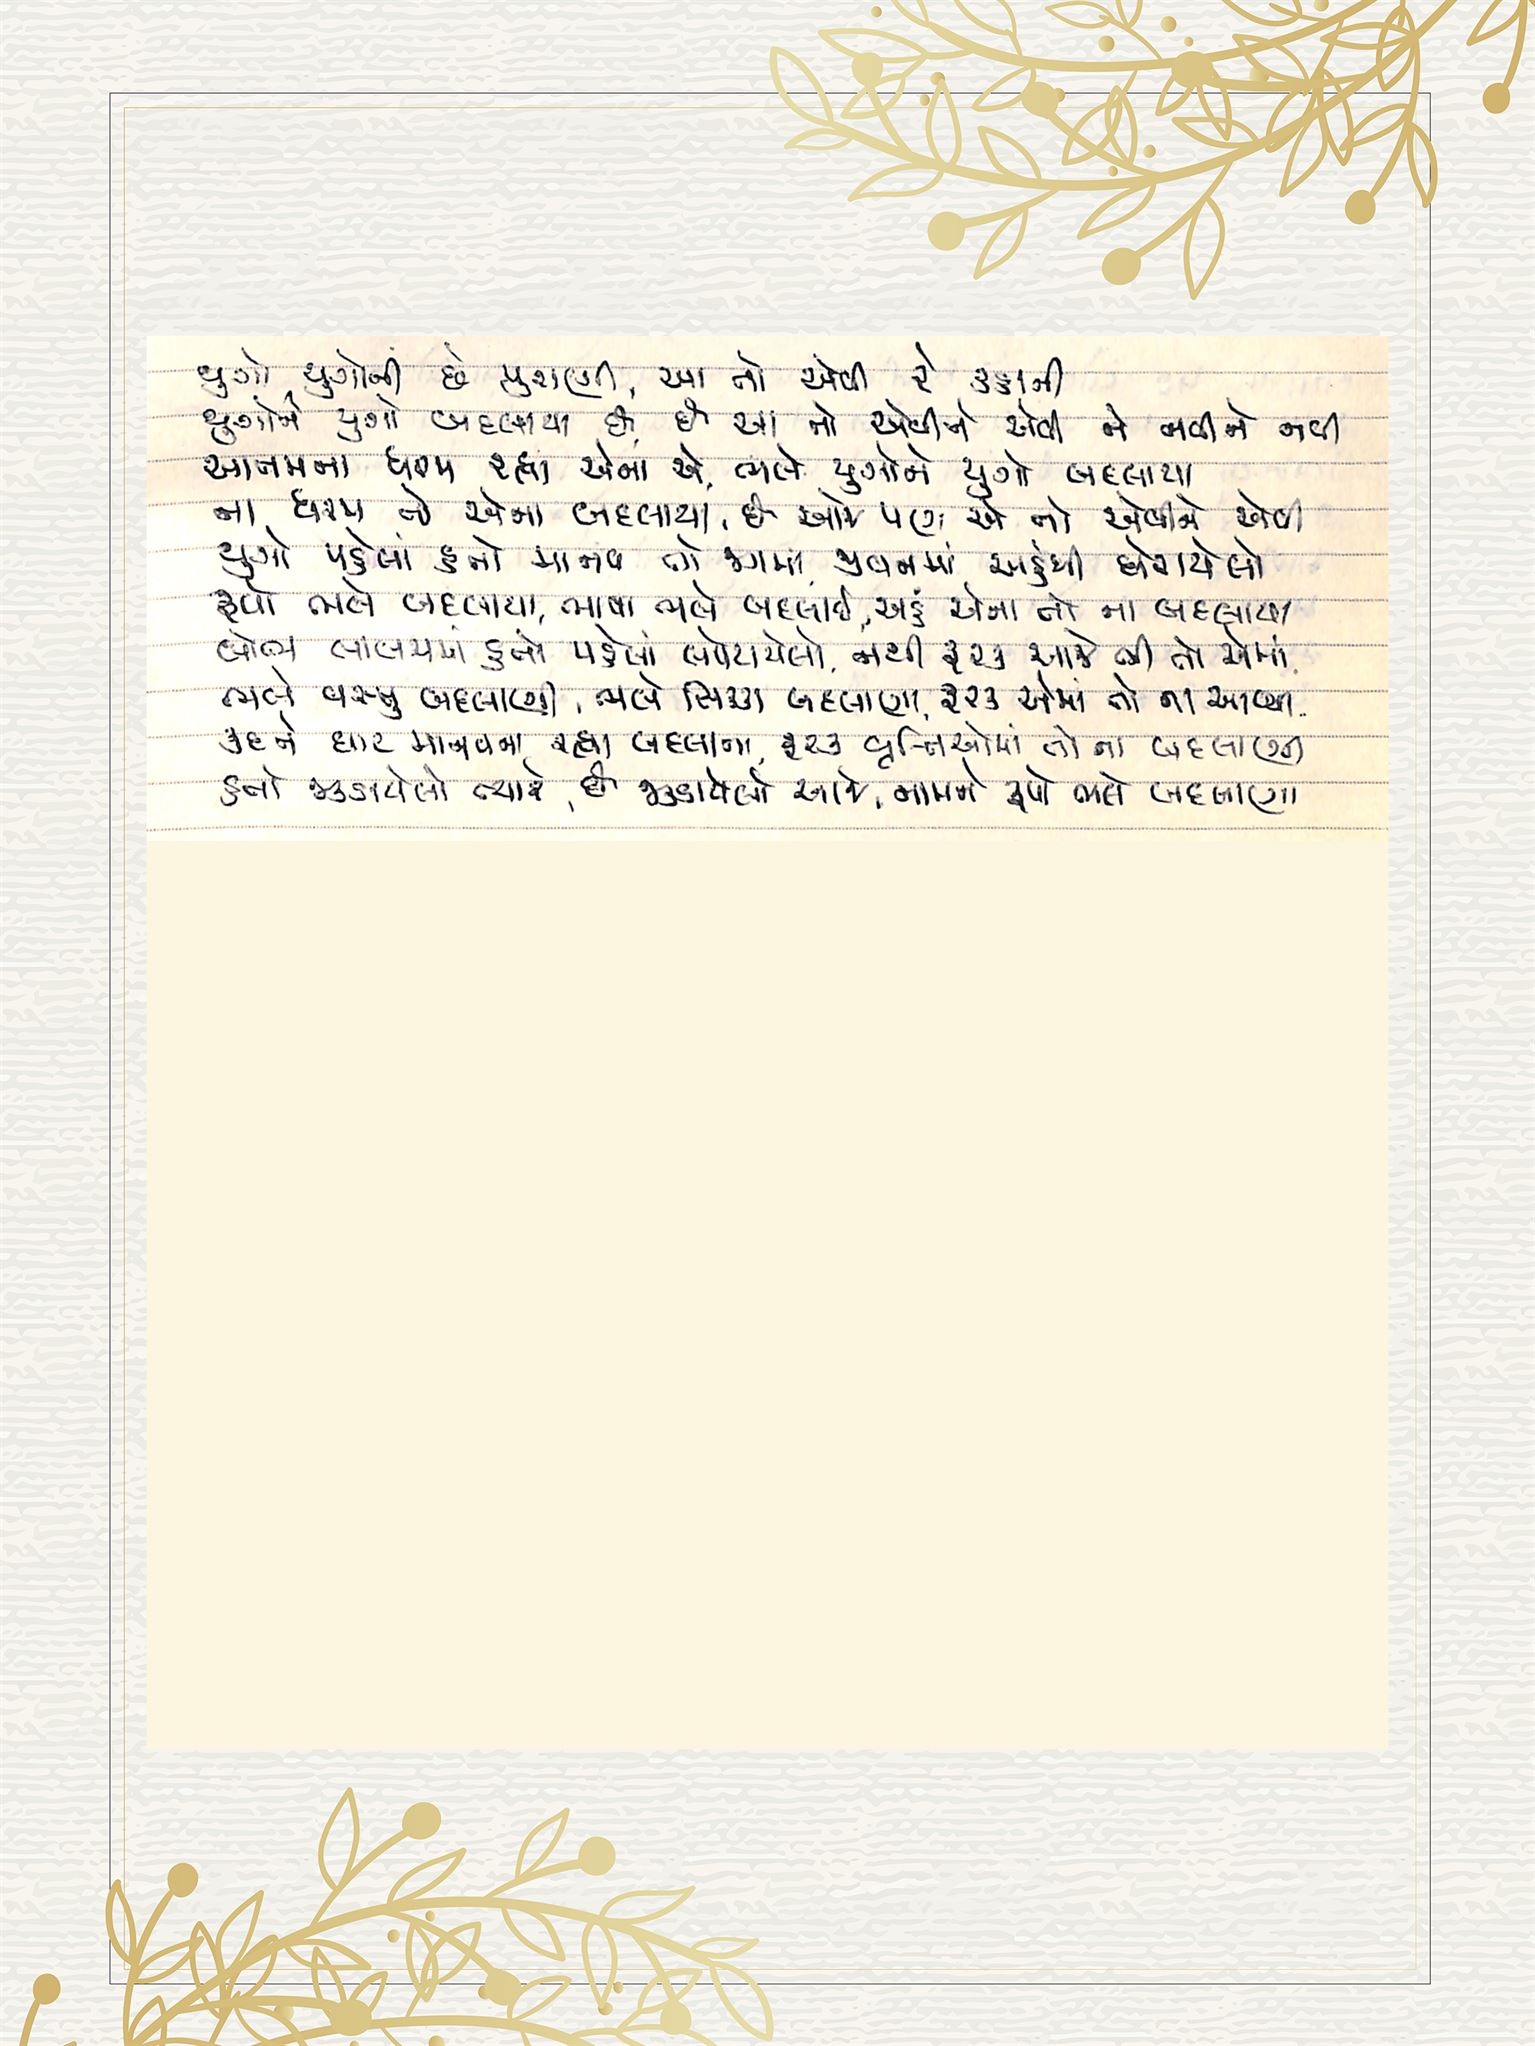 યુગો યુગોની છે પુરાણી, આ તો એવી રે કહાની
યુગોને યુગો બદલાયા છે, છે આ તો એવીને એવી ને નવીને નવી
આતમના ધરમ રહ્યા એના એ, ભલે યુગોને યુગો બદલાયા
ના ધરમ જે એના બદલાયા, છે આજે પણ એ તો એવીને એવી
યુગો પહેલાં હતો માનવ તો જગમાં, જીવનમાં અહંથી ઘેરાયેલો
રૂપો ભલે બદલાયા, ભાષા ભલે બદલાઈ, અહં એના તો ના બદલાયા
લોભ લાલચમાં હતો પહેલાં લપેટાયેલો, નથી ફરક આજે ભી તો એમાં
ભલે વસ્તુ બદલાણી, ભલે સિક્કા બદલાણા, ફરક એમાં તો ના આવ્યા
કદ ને ઘાટ માનવના રહ્યા બદલાતા, ફરક વૃત્તિઓમાં તો ના બદલાણી
હતો જકડાયેલો ત્યારે, છે જકડાયેલો આજે, નામને રૂપો ભલે બદલાણા